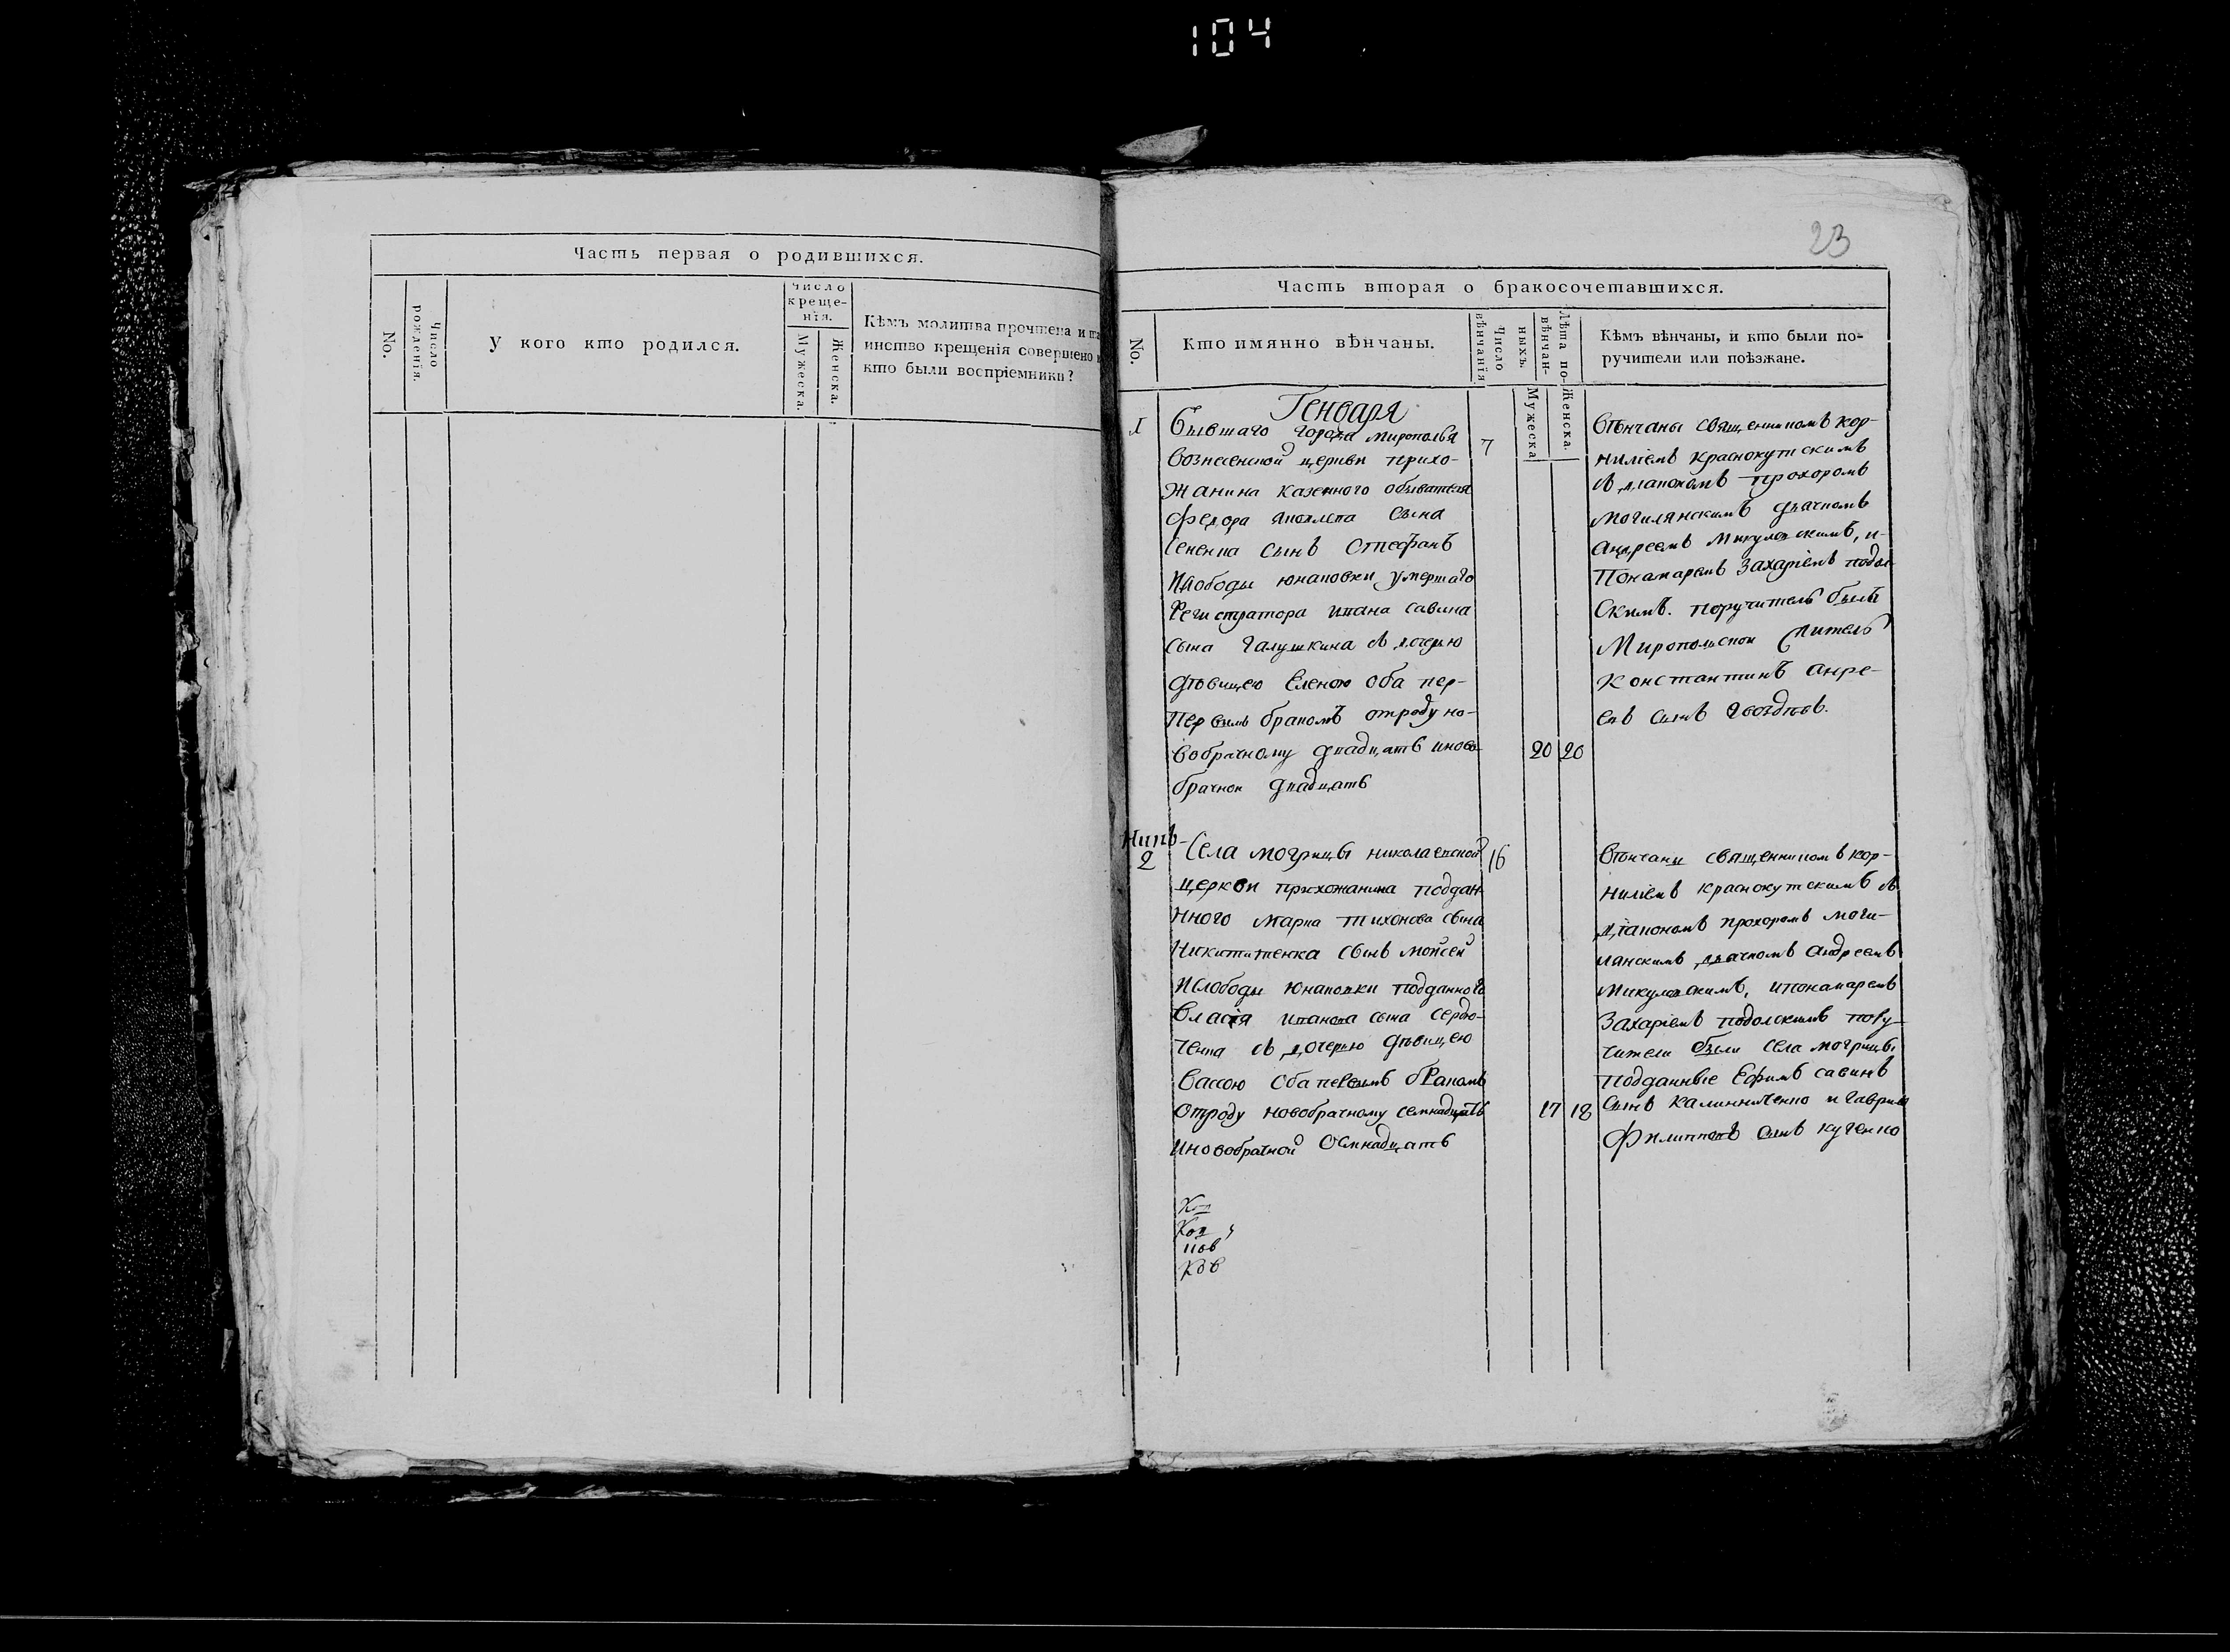 104
Часть первая о родившихся.
No.
Число рожденія.
У кого кто родился.
число
креще-
нія.
Мужеска.
Женска.
Кѣмъ молитва прочтена и та
инство крещенія совершено и
кто были воспріемники?
23
Часть вторая о бракосочетавшихся.
No.
Кто имянно вѣнчаны.
Число вѣнчанія
Лѣта по-
вѣнчан-
ныхъ.
Мужеска
Женска.
Кѣмъ вѣнчаны, и кто были по-
ручители или поѣзжане.
Генваря
1
Бывшаго города Мирополья
7
вознесенской церкви прихо-
жанина казенного обывателя
Федора сына
сынъ Стефанъ
юнаковки умершаго
Регистратора ивана савина
сына Галушкина съ дочерью
дѣвицею Еленою оба пер-
первымъ бракомъ отроду но-
вобрачному двадцать иново-
20 20
брачной двадцать
Вѣнчаны священникомъ кор-
ниліемъ краснокутскимъ
съ діакономъ прохоромъ
могилянскимъ дьячкомъ
андреемъ Микулскимъ, и-
Пономаремъ Захаріемъ подол
скимъ. поручитель былъ
Миропольской житель
Константинъ андре-
евъ сынъ гвоздѣев.
2
Села могрицы николаевской
16
церкви прихожанина поддан
нного марка тихонова сына
Никитченка сынъ мойсей
слободы Юнаковки подданного
Власія иванова сына Сердю-
ченка съ дочерью дѣвицею
Вассою оба первымъ бракомъ
отроду новобрачному семнадцать
17 18
иновобрачной осмнадцать
Вѣнчаны священникомъ кор-
ниліемъ краснокутскимъ съ
діакономъ прохоромъ моги-
лянскимъ дьячкомъ андреемъ
микулскимъ, ипонамаремъ
Захаріемъ подолскимъ пору-
чители были села могрицы
подданные Ефимъ савинъ
сынъ калиниченко и гаврила
Филиповъ сынъ куценко